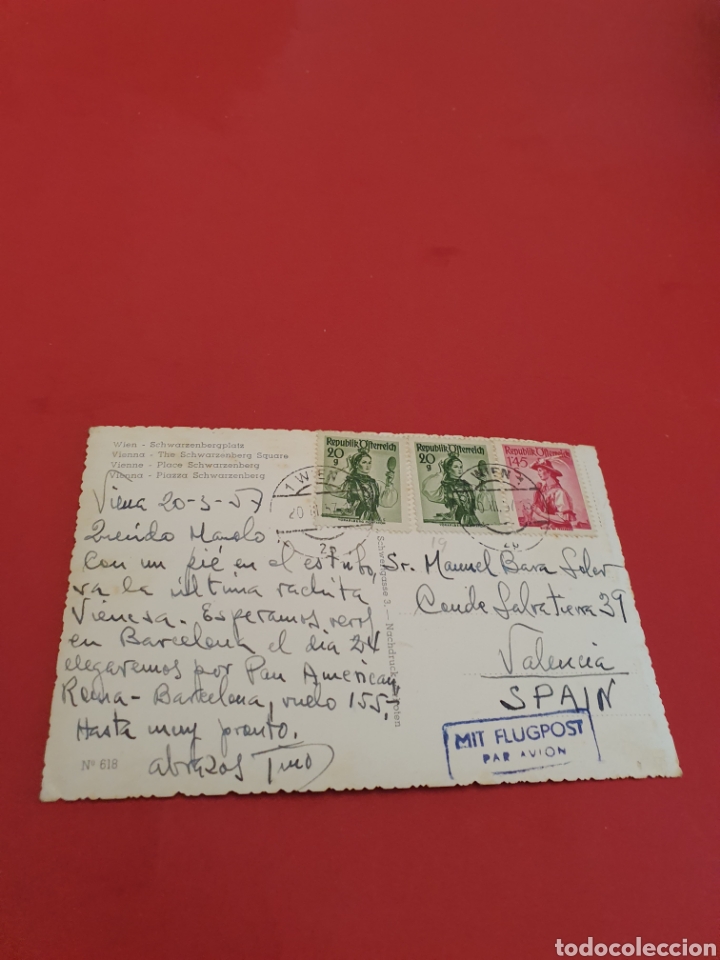 Wien - Schwarzenbergplatz
Vienna - The Schwarzenberg Square
Vienne - Place Schwarzenberg
Vienna - Piazza Schwarzenberg
Viena 20-3-57
Querido Manolo
Con un pié en el estribo,
va la última rachita
Vienesa. Esperamos veros
en Barcelona el dia 24
llegaremos por Pan American,
Roma-Barcelona, vuelo 155.
Hasta muy pronto.
abrazos Tino
Nº 618
Republik Österreich
20 g
Republik Österreich
20 g
Republik Österreich
1.45
1 WIEN 1
20
Schwertgasse 3. — Nachdruck verboten
Sr. Manuel Bara Soler
Conde Salvatierra 39
Valencia
SPAIN
MIT FLUGPOST
PAR AVION
todocoleccion